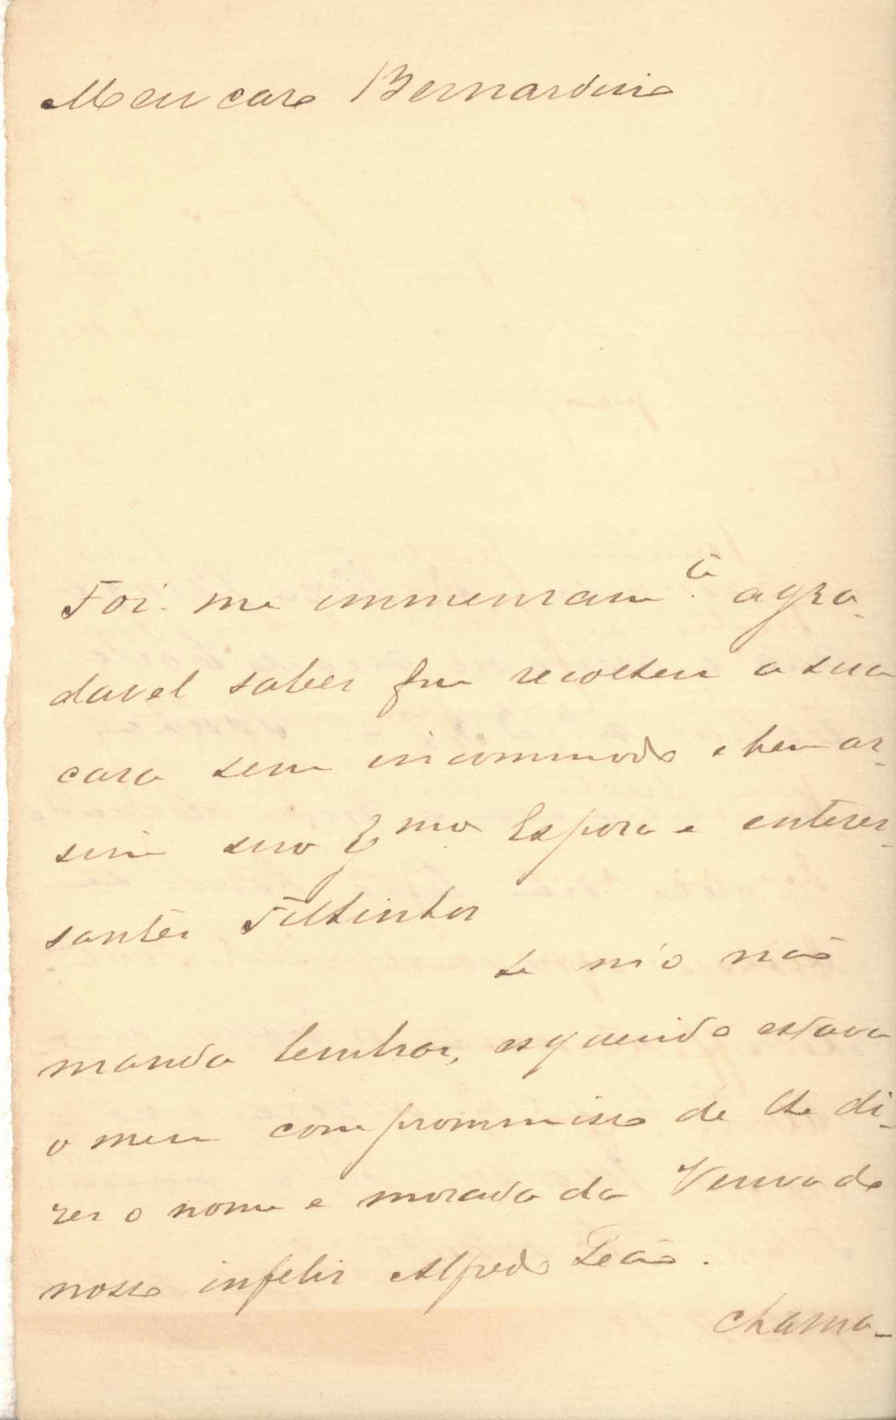 Meu caro Bernardino
Foi-me immensam.te agra-
davel saber que recolheu a sua
casa sem incommodo e bem as-
sim sua Exma Espoza e enteres-
santes Filhinhos
Se m'o não
manda lembrar, esquecido estava
o meu compromisso de lhe di-
zer o nome e morada da Viuva do
nosso infeliz Alfredo Leão.
Chama-